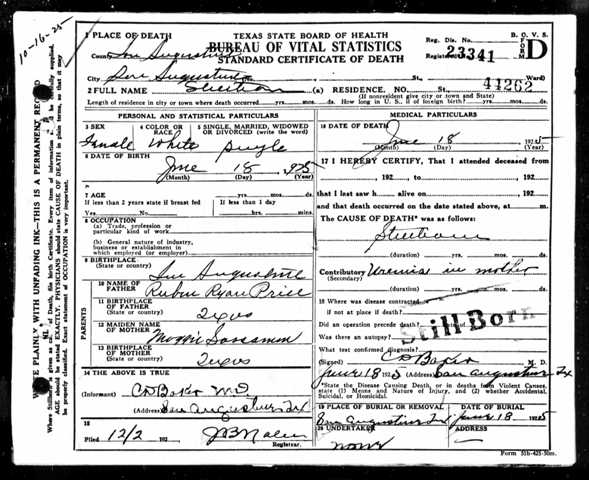 10-16-25
1 PLACE OF DEATH
TEXAS STATE BOARD OF HEALTH
BUREAU OF VITAL STATISTICS
STANDARD CERTIFICATE OF DEATH
Reg. Dis. No.
B. O. V. S.
FORM D
County San Augustine
Registrar's No. 23341
City San Augustine St., Ward)
44262
2 FULL NAME (a) RESIDENCE. NO. St.
(If nonresident give city or town and State)
Length of residence in city or town where death occurred yrs. mos. ds. How long in U. S., if of foreign birth? yrs. mos. ds.
PERSONAL AND STATISTICAL PARTICULARS
3 SEX
4 COLOR OR RACE
5 SINGLE, MARRIED, WIDOWED OR DIVORCED (write the word)
Female White Single
6 DATE OF BIRTH
June 18 1925
(Month) (Day) (Year)
7 AGE
If less than 2 years state if breast fed
If less than 1 day
Yes No hrs. mins.
8 OCCUPATION
(a) Trade, profession or particular kind of work
(b) General nature of industry, business or establishment in which employed (or employer)
9 BIRTHPLACE
(State or country)
San Augustine
PARENTS
10 NAME OF FATHER Rubin Ryan Price
11 BIRTHPLACE OF FATHER
(State or country) Texas
12 MAIDEN NAME OF MOTHER Maggie
13 BIRTHPLACE OF MOTHER
(State or country) Texas
14 THE ABOVE IS TRUE
(Informant) Baker M.D.
(Address) San Augustine Tex
15
Filed 12/2 192
Registrar.
MEDICAL PARTICULARS
16 DATE OF DEATH
June 18 1925
(Month) (Day) (Year)
17 I HEREBY CERTIFY, That I attended deceased
from
, 192 , to , 192
that I last saw h alive on , 192
and that death occurred on the date stated above, at m.
The CAUSE OF DEATH* was as follows:
(duration) yrs. mos. ds.
Contributory Uremia in mother
(Secondary)
(duration) yrs. mos. ds.
18 Where was disease contracted
if not at place of death?
Did an operation precede death?
Still Born
Was there an autopsy?
What test confirmed diagnosis?
Baker M. D.
June 18 1925 (Address) San Augustine Tx
*State the Disease Causing Death, or in deaths from Violent Causes, state (1) Means and Nature of Injury, and (2) whether Accidental, Suicidal, or Homicidal.
19 PLACE OF BURIAL OR REMOVAL
DATE OF BURIAL
San Augustine Tx June 18 1925
20 UNDERTAKER
ADDRESS
none
Form 51b-425-50m.